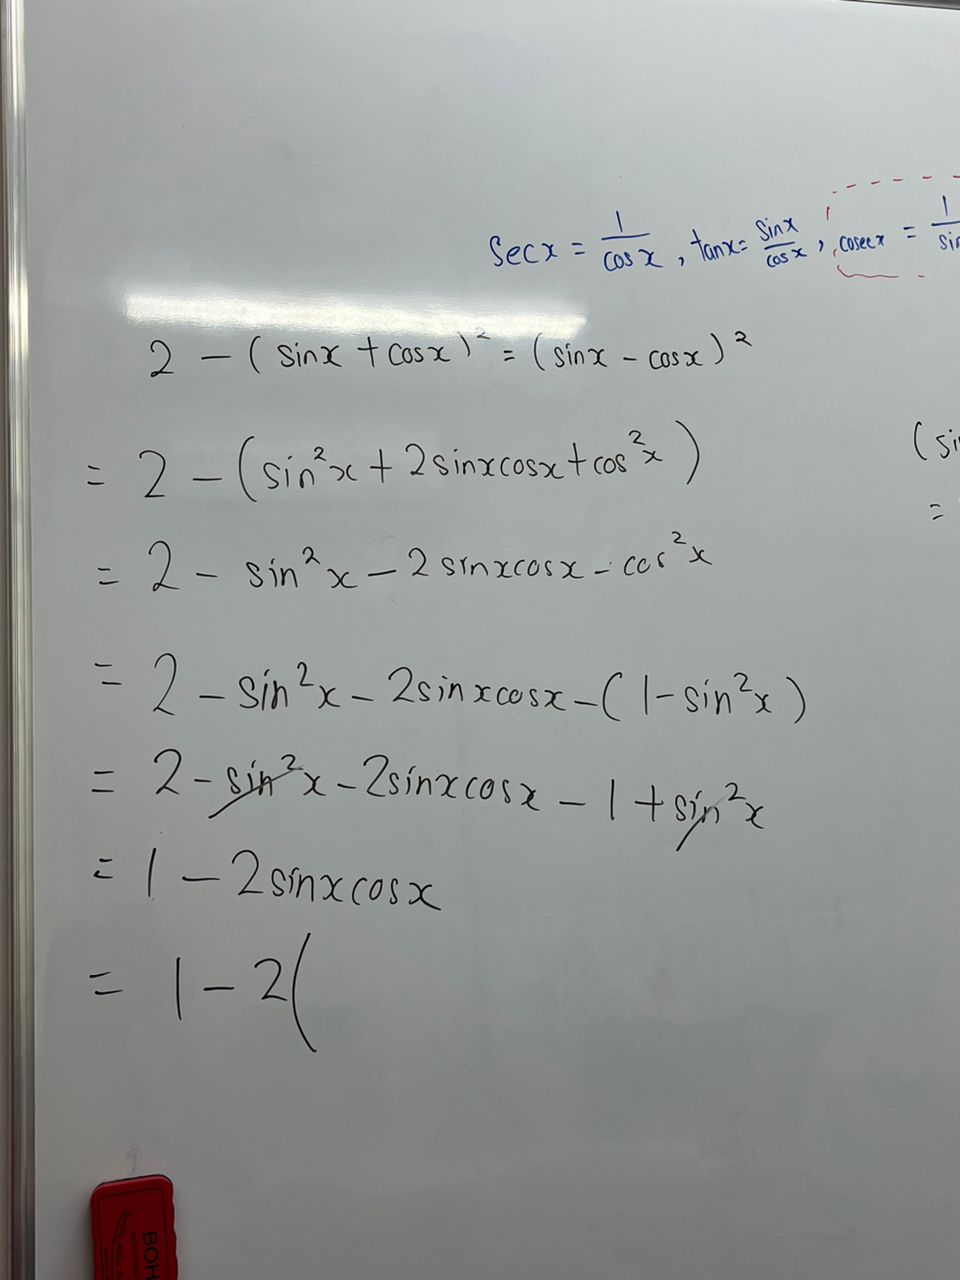 Sec x = 1/cos x , tan x = sin x/cos x , cosec x = 1/sin
2 – (sin x + cos x)² = (sin x – cos x)²
= 2 – (sin²x + 2 sin x cos x + cos²x)
(si
= 2 – sin²x – 2 sin x cos x – cos²x
=
= 2 – sin²x – 2 sin x cos x – (1 – sin²x)
= 2 – sin²x – 2 sin x cos x – 1 + sin²x
= 1 – 2 sin x cos x
= 1 – 2(
BOH